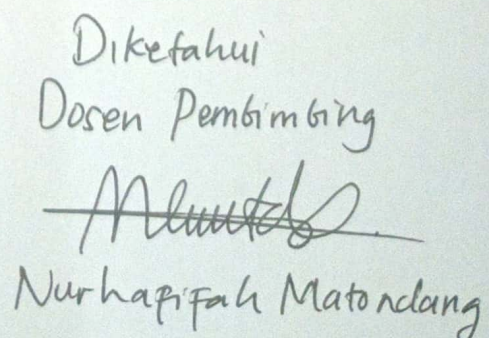 Diketahui
Dosen Pembimbing
Nurhafifah Matondang